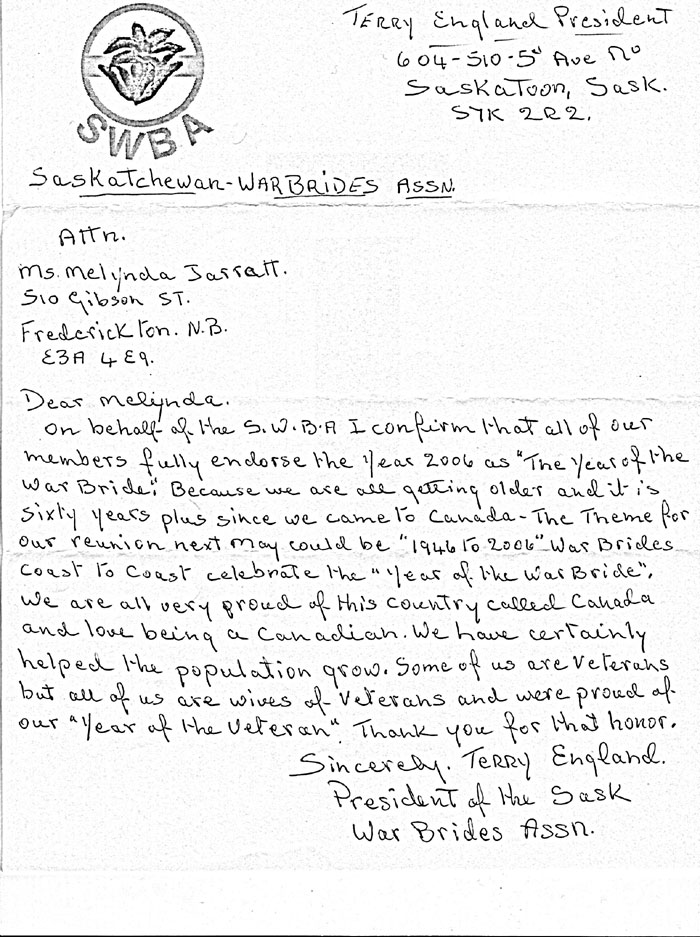 Terry England President
604-510-5th Ave No
Saskatoon, Sask.
S7K 2R2.
SWBA
Saskatchewan-War Brides Assn.
Attn.
Ms. Melynda Jarratt.
510 Gibson St.
Frederickton. N.B.
E3A 4E9.
Dear Melynda.
On behalf of the S.W.B.A I confirm that all of our
members fully endorse the Year 2006 as "The Year of the
War Bride". Because we are all getting older and it is
sixty years plus since we came to Canada - The Theme for
our reunion next May could be "1946 to 2006" War Brides
Coast to Coast celebrate the "Year of the War Bride".
We are all very proud of this country called Canada
and love being a Canadian. We have certainly
helped the population grow. Some of us are Veterans
but all of us are wives of Veterans and were proud of
our "Year of the Veteran". Thank you for that honor.
Sincerely. Terry England.
President of the Sask
War Brides Assn.